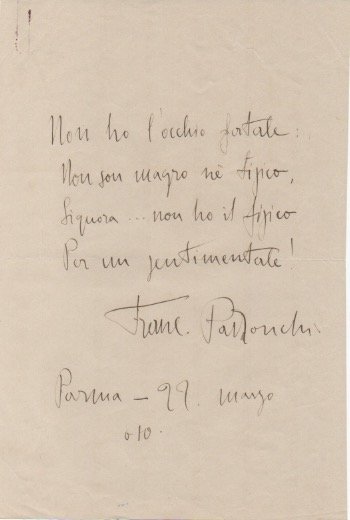 Non ho l'occhio fatale:
Non son magro nè tisico,
Signora ... non ho il fisico
Per un sentimentale!
Franc. Pastonchi
Parma — 22. marzo
910.